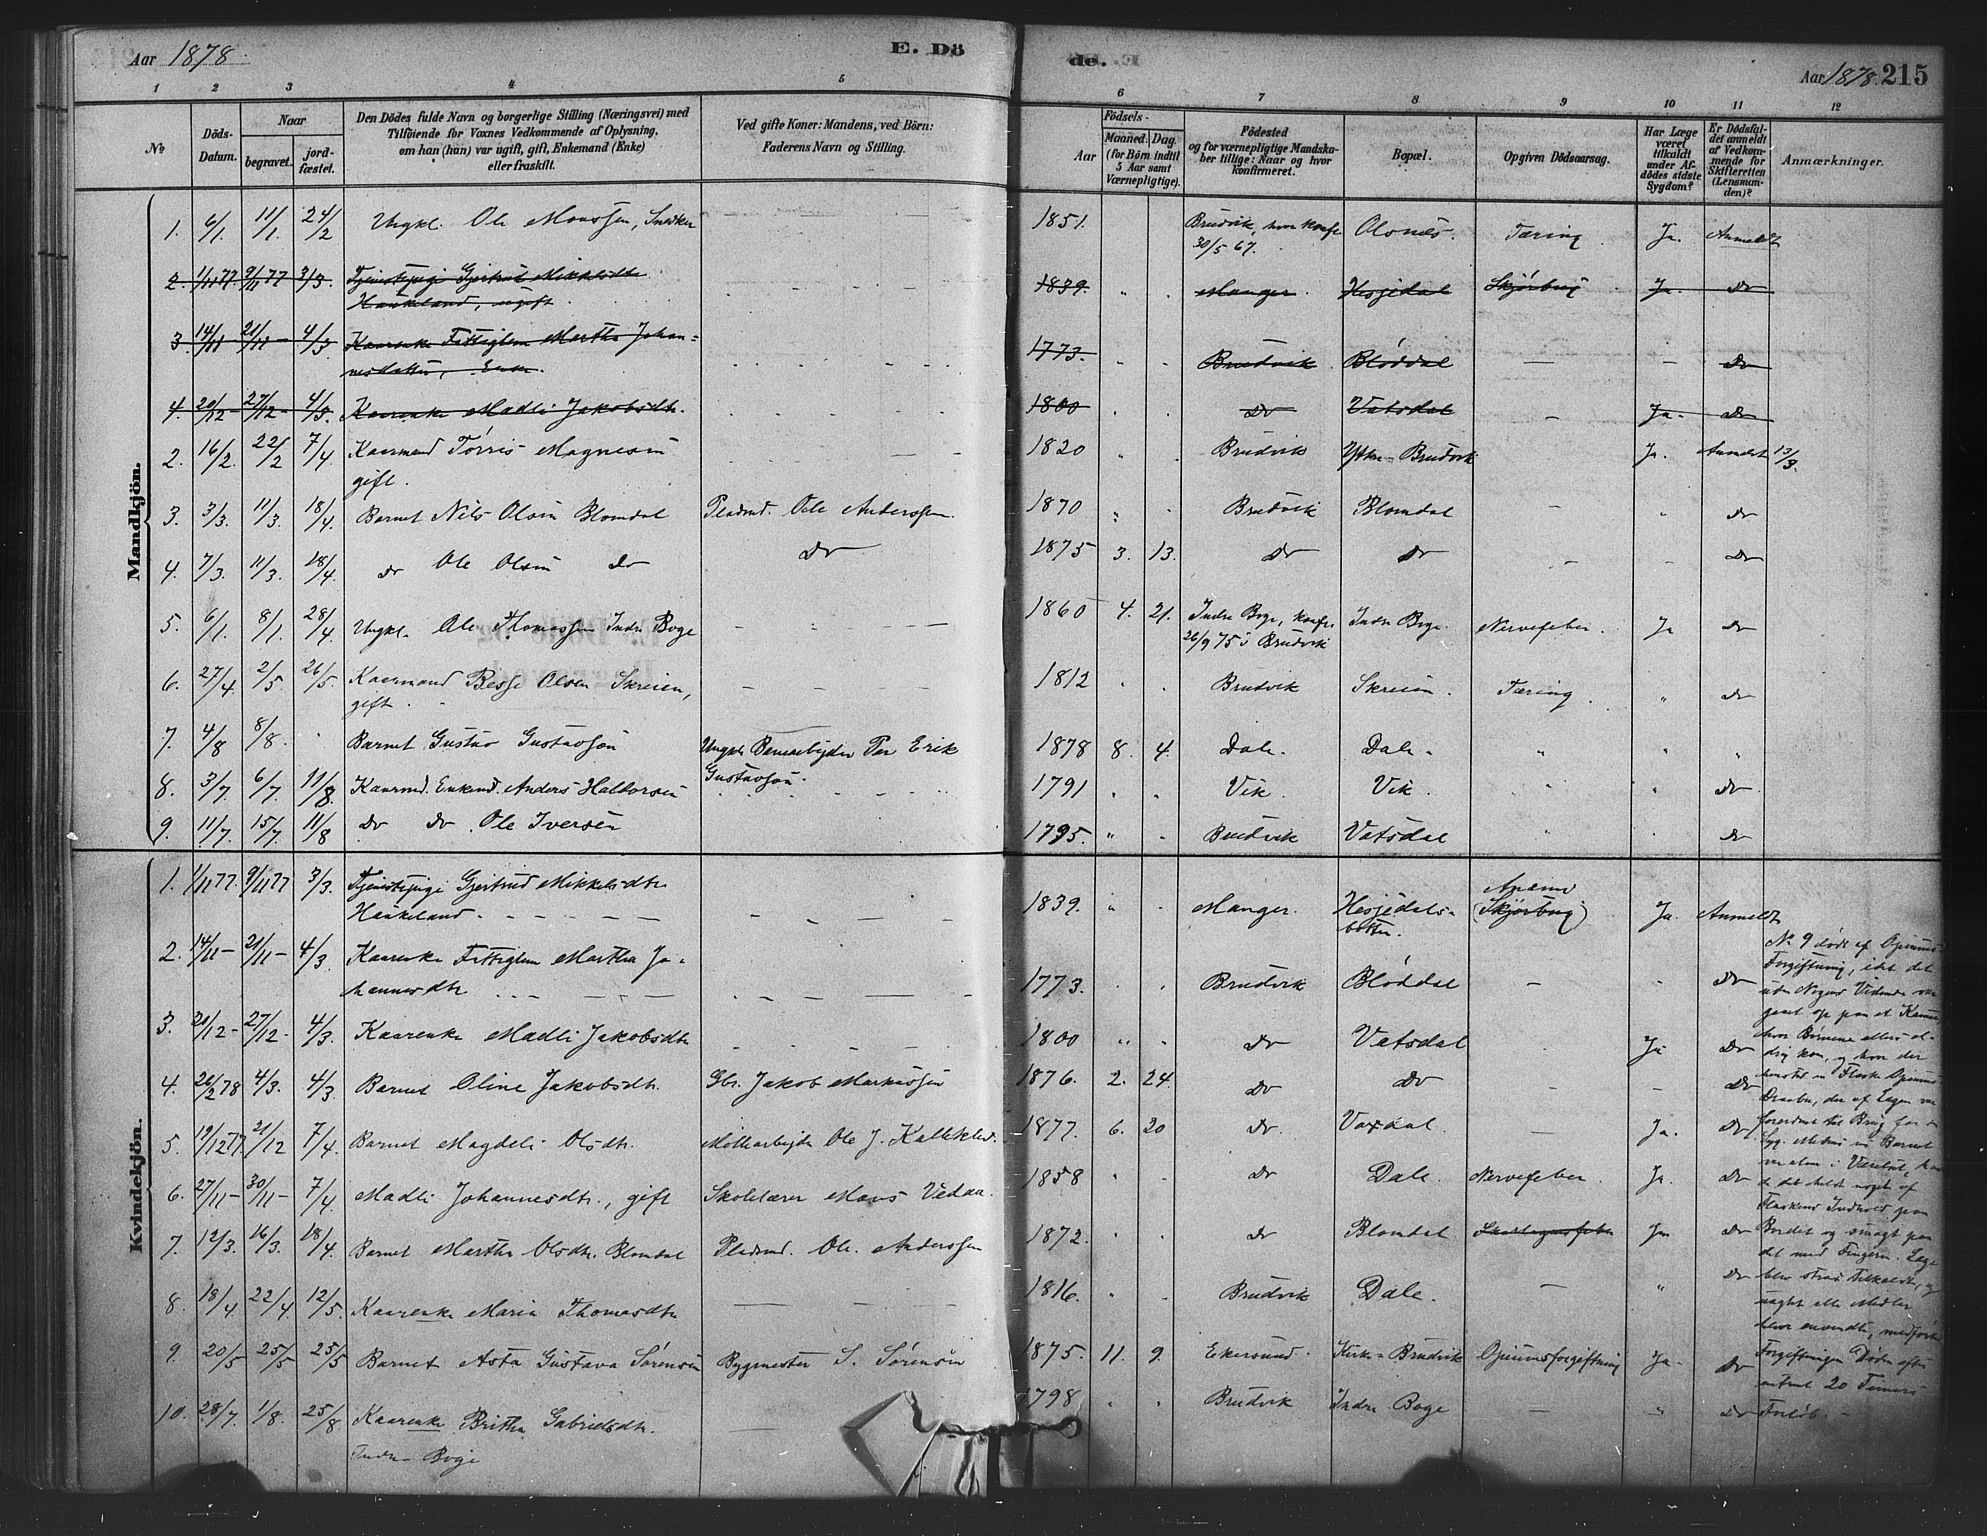 Aar 1878. E. Dö
de. Aar 1878. 215
1 2 3 4 5 6 7 8 9 10 11 12
No
Döds-Datum.
Naar
begravet.
jord-fæstet.
Den Dödes fulde Navn og borgerlige Stilling (Næringsvei) med
Tilföiende for Voxnes Vedkommende af Oplysning,
om han (hun) var ugift, gift, Enkemand (Enke)
eller fraskilt.
Ved gifte Koner: Mandens, ved Börn:
Faderens Navn og Stilling.
Födsels-
Aar
Maaned. Dag.
(for Börn indtil
5 Aar samt
Værnepligtige).
Födested
og for værnepligtige Mandska-
ber tillige: Naar og hvor
konfirmeret.
Bopæl.
Opgiven Dödsaarsag.
Har Læge
været
tilkaldt
under Af-
dödes sidste
Sygdom?
Er Dödsfal-
det anmeldt
af Vedkom-
mende for
Skifteretten
(Lensman-
den)?
Anmærkninger.
Mandkjön.
1. 6/1 11/1. 24/2 Ungkl. Ole Monssen, Snedker 1851. Brudvik, hvor konfr. 30/5 67. Olsnes. Tæring. Ja. Anmeldt
2. 1/11 77. 9/11 77 3/3 Tjenestepige Gjertrud Mikkelsdtr. Haukeland, ugift. 1839. Manger. Hesjedal Skjørbug Ja. Do
3. 14/11 21/11 4/3 Kaarenke Fattiglem Martha Johan=
nesdatter, Enke. 1773. Brudvik Bløddal — Do
4. 20/12 27/12 4/3 Kaarenke Madli Jakobsdtr. 1800 Do Vatsdal — Ja. Do
2. 16/2. 22/2 7/4. Kaarmand Tørris Magnesen
gift. 1820 Brudvik Brudvik Ja. Anmeldt 13/3.
3. 3/3. 11/3. 18/4. Barnet Nils Olsen Blomdal Pladsmd. Ole Anderssen. 1870 Brudvik Blomdal — Do
4. 7/3. 11/3. 18/4. Do Ole Olsen Do Do 1875 3. 13. Do Do Do
5. 6/1. 8/1. 28/4. Ungkl. Ole Thomassen Indre Boge 1860 4. 21. Indre Boge, konfr. 26/9 75 i Brudvik Indre Boge. Nervefeber. Ja Do
6. 27/4. 2/5. 26/5. Kaarmand Besse Olsen Skreien,
gift. 1812 Brudvik Skreien. Tæring. Do
7. 4/8 8/8. Barnet Gustav Gustavson Ungkl. Banearbejder Per Erik
Gustavson. 1878 8. 4. Dale. Dale.
8. 3/7. 6/7. 11/8. Kaarmd. Enkmd. Anders Haldorsen 1791 Vik. Vik. Do
9. 11/7. 15/7. 11/8 Do Do Ole Iversen 1795. Brudvik Vatsdal Do
Kvindekjön.
1. 1/11 77. 9/11 77 3/3. Tjenestepige Gjertrud Mikkelsdtr.
Haukeland. 1839. Manger. Hesjedals-
botten. (Skjørbug) Ja. Anmeldt
2. 14/11 21/11 4/3 Kaarenke Fattiglem Martha Jo-
hannesdtr 1773. Brudvik Bløddal — Do
3. 20/12 27/12 4/3 Kaarenke Madli Jakobsdtr 1800 Do Vatsdal Ja Do
4. 26/2 78 4/3. 4/3 Barnet Oline Jakobsdtr. Gbr. Jakob Markussen 1876. 2. 24. Do Do — Do
5. 19/12 77. 21/12 7/4. Barnet Magdeli Olsdtr. Møllearbejder Ole J. 1877. 6. 20 Do. Vaxdal. — Ja. Do
6. 27/11 30/11 7/4 Madli Johannesdtr., gift Skolelærer Mons Vedaa. 1858 Do Dale. Nervefeber. Ja. Do
7. 12/3. 16/3. 18/4. Barnet Martha Olsdtr. Blomdal Pladsmd. Ole Anderssen 1872. Do Blomdal Skarlagensfeber Ja Do
8. 18/4. 22/4. 12/5. Kaarenke Maria Thomasdtr 1816. Brudvik Dale. — Do
9. 20/5 25/5 25/5 Barnet Asta Gustava Sørensen Bygmester S. Sørensen 1875. 11. 9. Ekersund. Kirke-Brudvik Opiumsforgiftning Ja. Do
10. 28/7. 1/8. 25/8. Kaarenke Britha Gabrielsdtr.
Indre Boge 1798 Brudvik Indre Boge — Do
No 9 døde af Opiums
Forgiftning, idet det
uden Nogens Vidende var
gaaet op paa et Kammer
hvor Børnene ellers al-
drig kom, og hvor der
en Flaske Opiums
Draaber, der af Lægen var
forordnet til Brug for
syg. Medens Barnet
var alene i Værelset, har
det heldt noget af
Flaskens Indhold paa
Bordet og smagt paa
det med Fingeren. Læge
blev strax tilkaldt, og
uagtet alle Midler
blev anvendte, medførte
Forgiftningen Døden efter
omtrent 20 Timers
Forløb. —